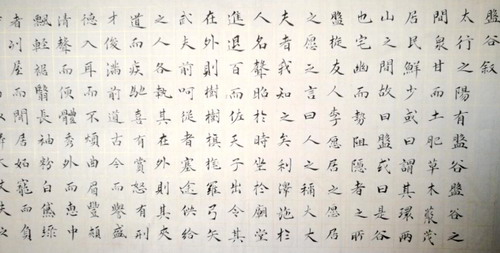 盤谷叙
太行之陽有盤谷盤谷之
間泉甘而土肥草木叢茂
居民鮮少或曰謂其環兩
山之間故曰盤或曰是谷
也宅幽而勢阻隱者之所
盤旋友人李愿居之愿居
之愿之言曰人之稱大丈
夫者我知之矣利澤施於
人名聲昭於時坐於廟堂
進退百而佐天子出令其
在外則樹樹旗旄羅弓矢
武夫前呵從者塞途供給
之人各執其在外則其夾
道而疾馳喜有賞怒有刑
才俊滿前道古今而譽盛
德入耳而不煩曲眉豐頰
清聲而便體秀外而惠中
飄輕裾翳長袖粉白黛綠
者列屋而閑居妒寵而負